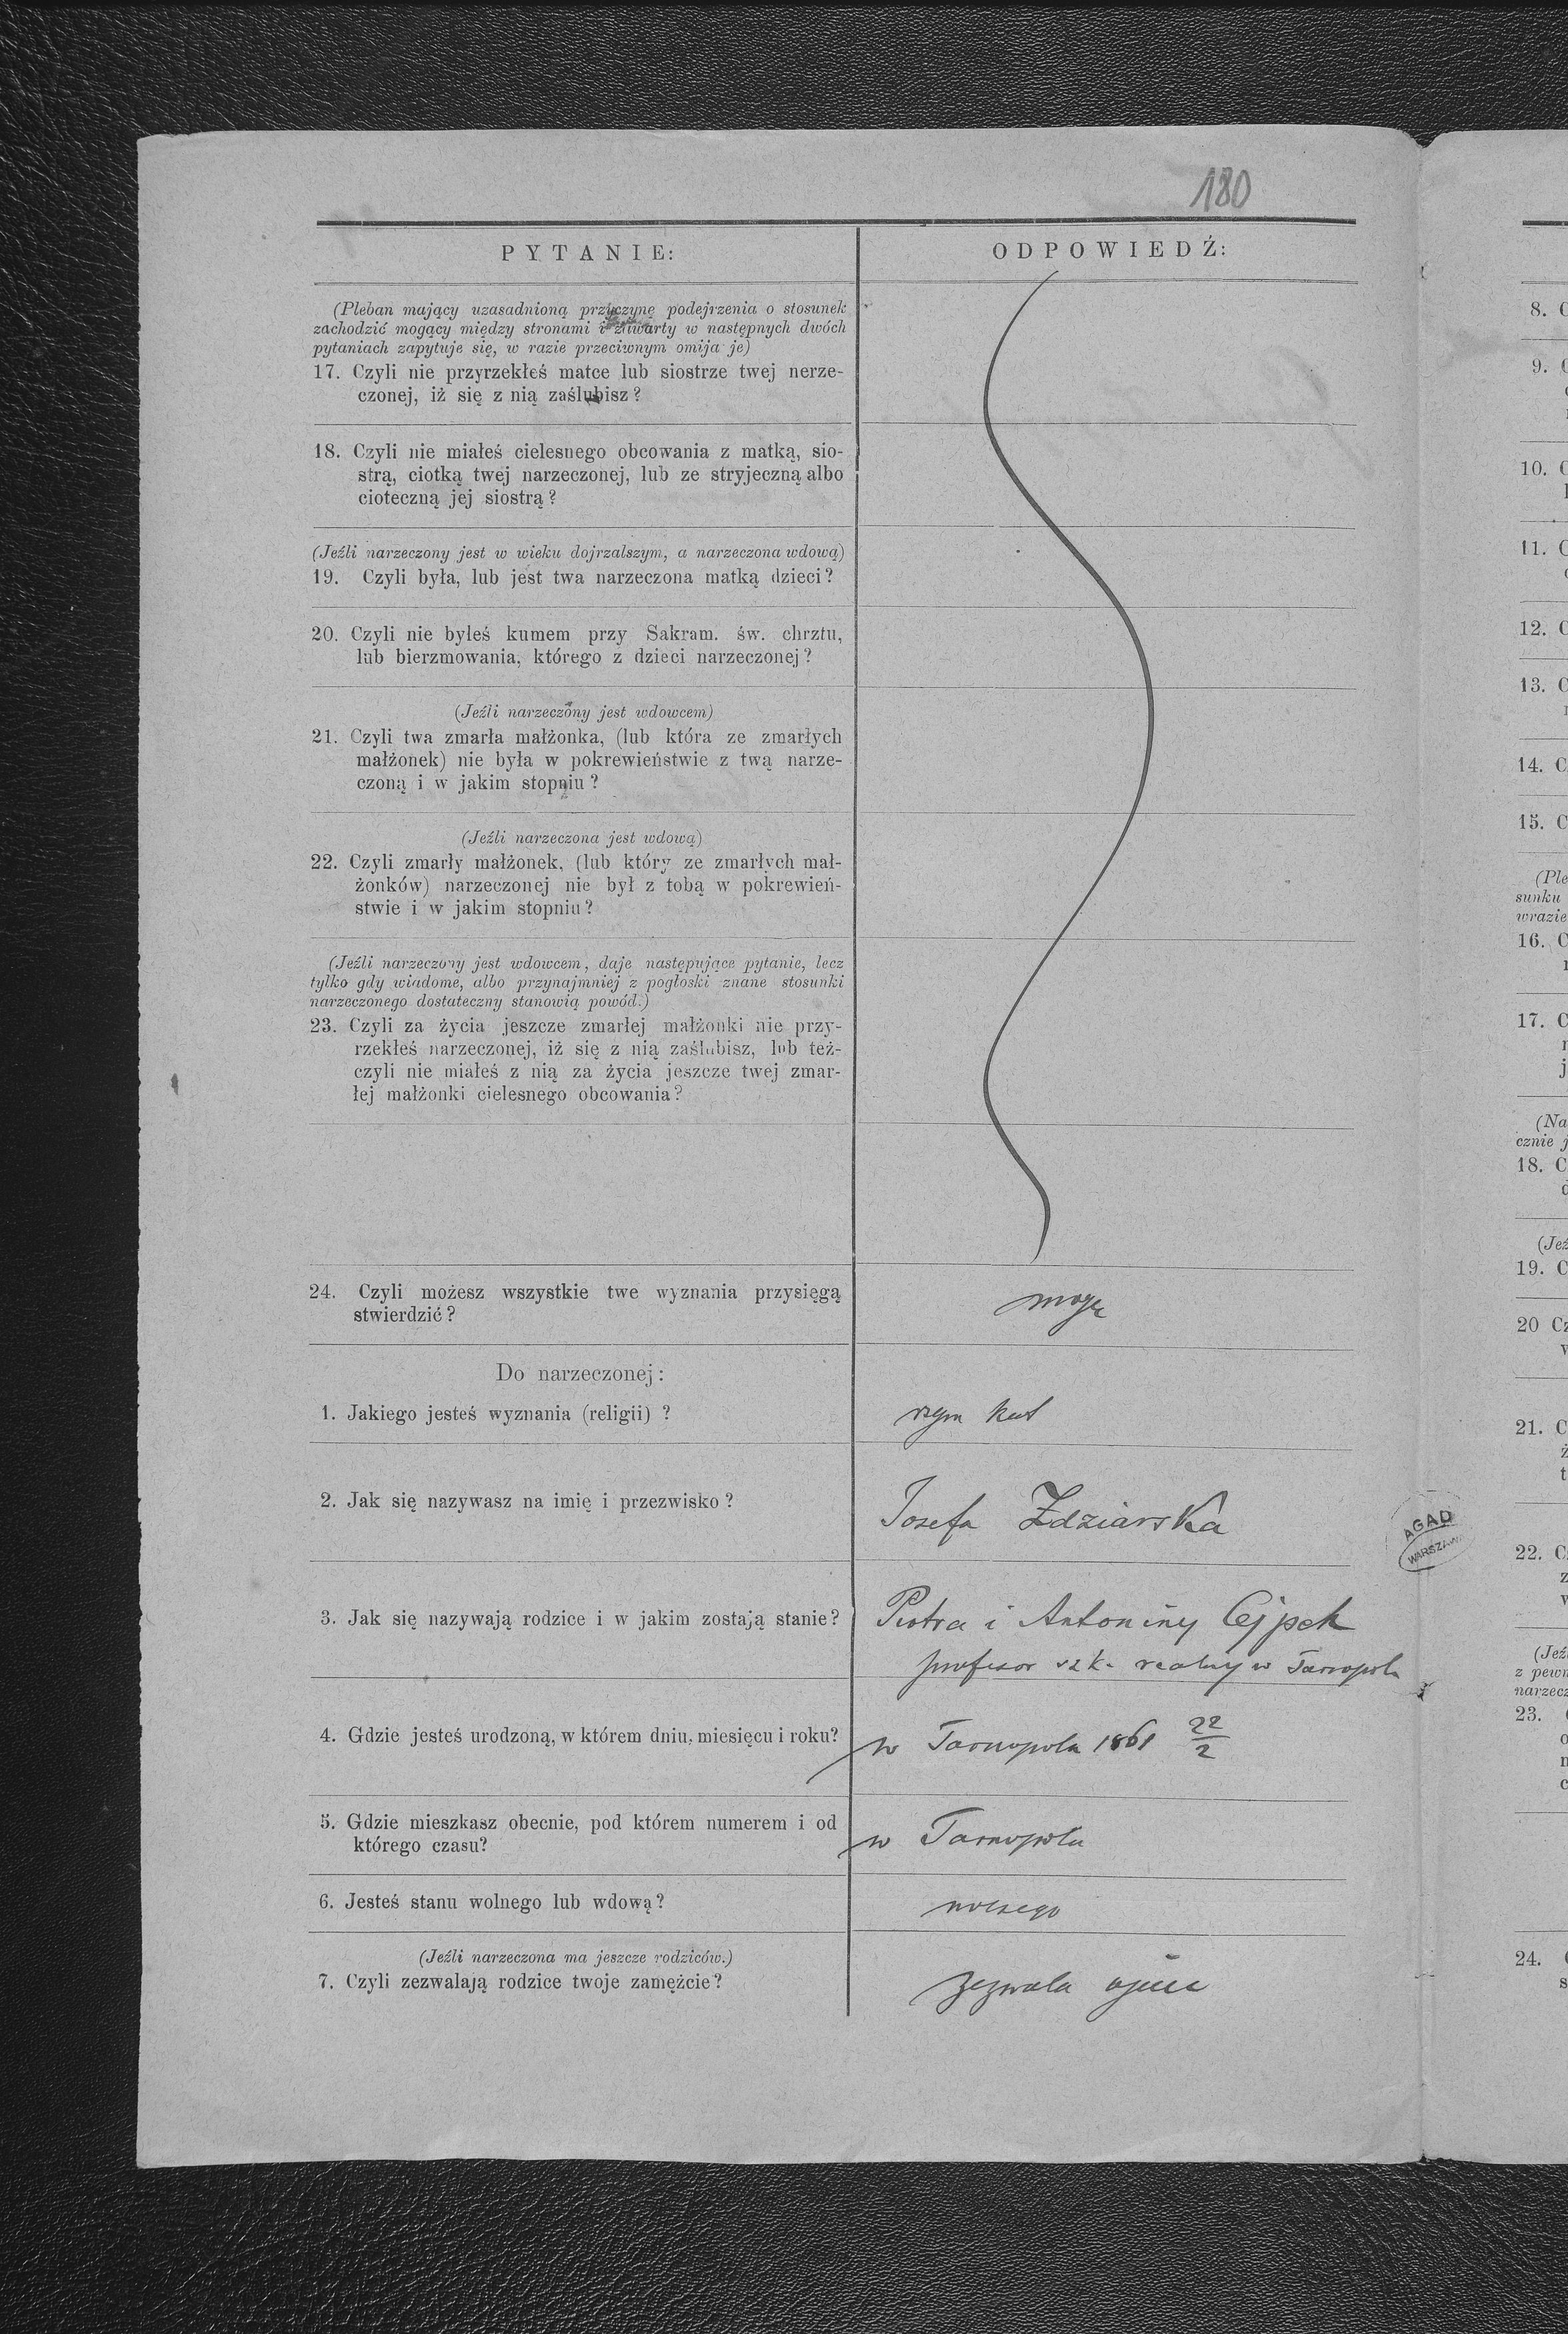 180
PYTANIE:
ODPOWIEDŹ:
(Pleban mający uzasadnioną przyczynę podejrzenia o stosunek
zachodzić mogący między stronami i zawarty w następnych dwóch
pytaniach zapytuje się, w razie przeciwnym omija je)
17. Czyli nie przyrzekłeś matce lub siostrze twej nerze-
czonej, iż się z nią zaślubisz?
18. Czyli nie miałeś cielesnego obcowania z matką, sio-
strą, ciotką twej narzeczonej, lub ze stryjeczną albo
cioteczną jej siostrą?
(Jeźli narzeczony jest w wieku dojrzalszym, a narzeczona wdową)
19. Czyli była, lub jest twa narzeczona matką dzieci?
20. Czyli nie byłeś kumem przy Sakram. św. chrztu,
lub bierzmowania, którego z dzieci narzeczonej?
(Jeźli narzeczony jest wdowcem)
21. Czyli twa zmarła małżonka, (lub która ze zmarłych
małżonek) nie była w pokrewieństwie z twą narze-
czoną i w jakim stopniu?
(Jeźli narzeczona jest wdową)
22. Czyli zmarły małżonek, (lub który ze zmarłych mał-
żonków) narzeczonej nie był z tobą w pokrewień-
stwie i w jakim stopniu?
(Jeźli narzeczony jest wdowcem, daje następujące pytanie, lecz
tylko gdy wiadome, albo przynajmniej z pogłoski znane stosunki
narzeczonego dostateczny stanowią powód.)
23. Czyli za życia jeszcze zmarłej małżonki nie przy-
rzekłeś narzeczonej, iż się z nią zaślubisz, lub też-
czyli nie miałeś z nią za życia jeszcze twej zmar-
łej małżonki cielesnego obcowania?
24. Czyli możesz wszystkie twe wyznania przysięgą
stwierdzić?
mogę
Do narzeczonej:
1. Jakiego jesteś wyznania (religii) ?
rzym kat
2. Jak się nazywasz na imię i przezwisko?
Josefa Zdziarska
3. Jak się nazywają rodzice i w jakim zostają stanie?
Piotra i Antoniny Cejpek
profesor szk. realny w Tarnopolu
4. Gdzie jesteś urodzoną, w którem dniu, miesięcu i roku?
w Tarnopolu 1861 22/2
5. Gdzie mieszkasz obecnie, pod którem numerem i od
którego czasu?
w Tarnopolu
6. Jesteś stanu wolnego lub wdową?
wolnego
(Jeźli narzeczona ma jeszcze rodziców.)
7. Czyli zezwalają rodzice twoje zamęźcie?
zezwala ojciec
AGAD
WARSZAWA
8. C
9. C
10. C
11. C
12. C
13. C
14. C
15. C
(Ple
sunku
wrazie
16. C
17. C
(Na
cznie j
18. C
(Jeź
19. C
20 Cz
21. C
22. C
(Jeź
z pewn
narzecz
23.
24.